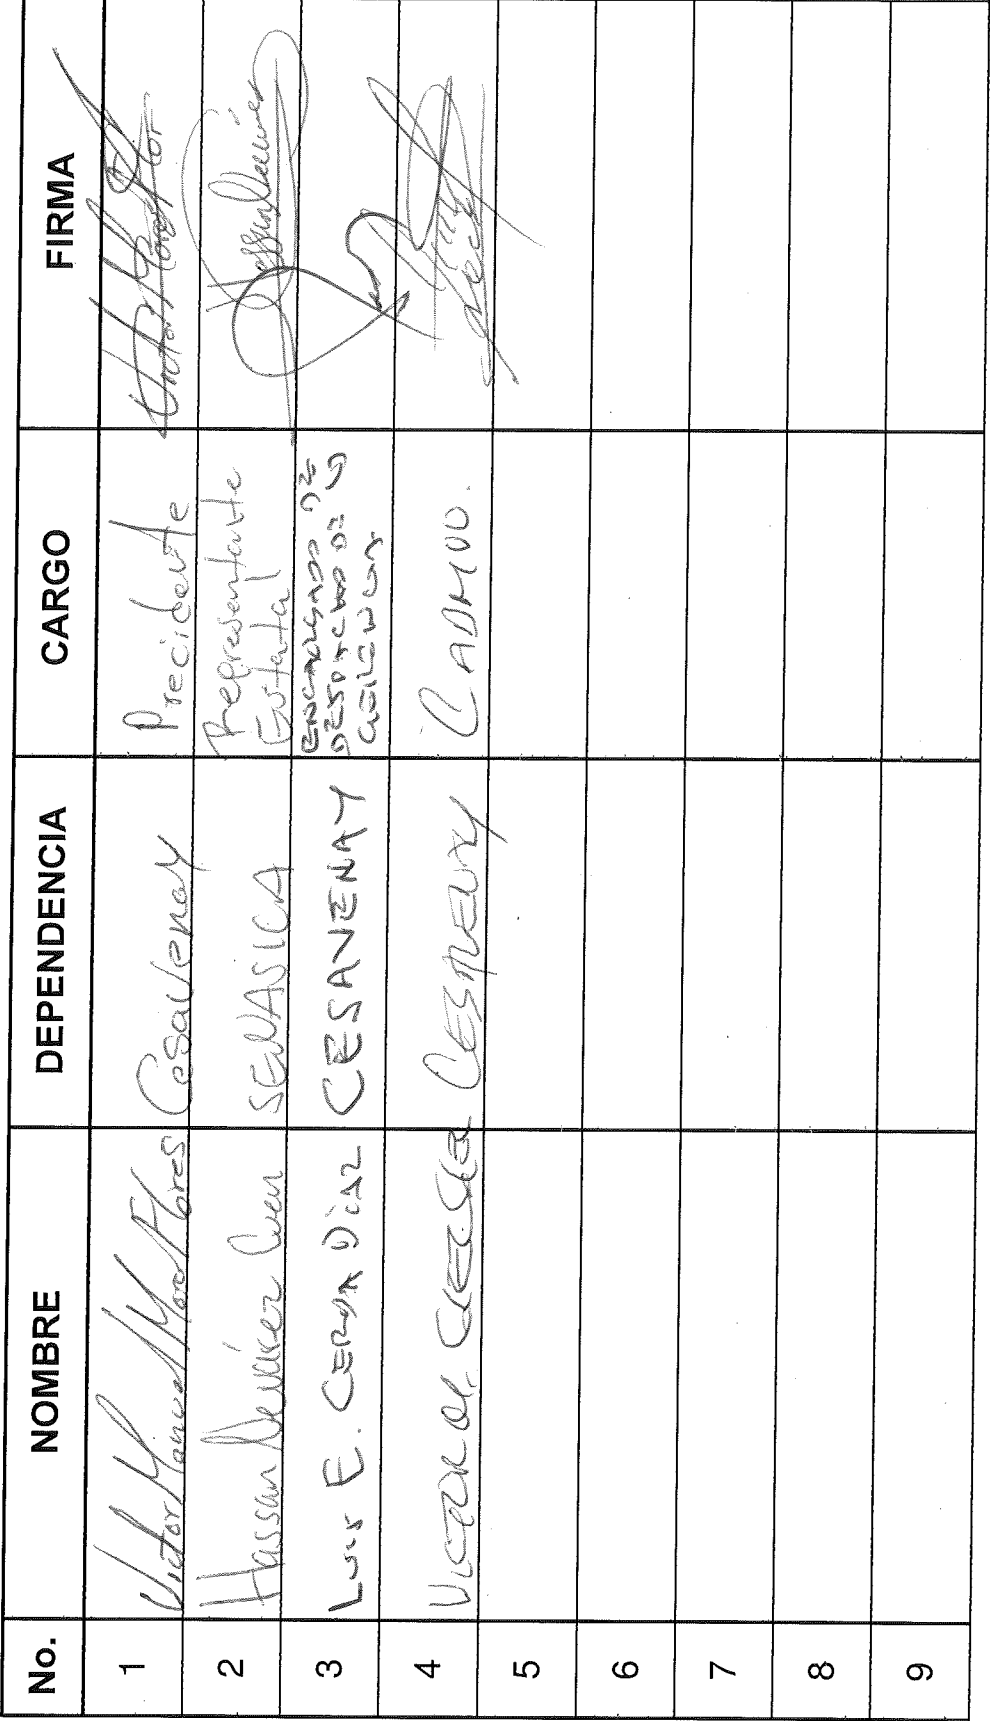 No. NOMBRE DEPENDENCIA CARGO FIRMA
1 Victor Manuel Mora Flores Cesavenay Precidente
2 Hassan Cuen SENASICA Representante
Estatal
3 LUIS E. CERDA DiAZ CESAVENAY ENCARGADO DE
DESPACHO DE LA
GERENCIA
4 CESAVENAY
5
6
7
8
9